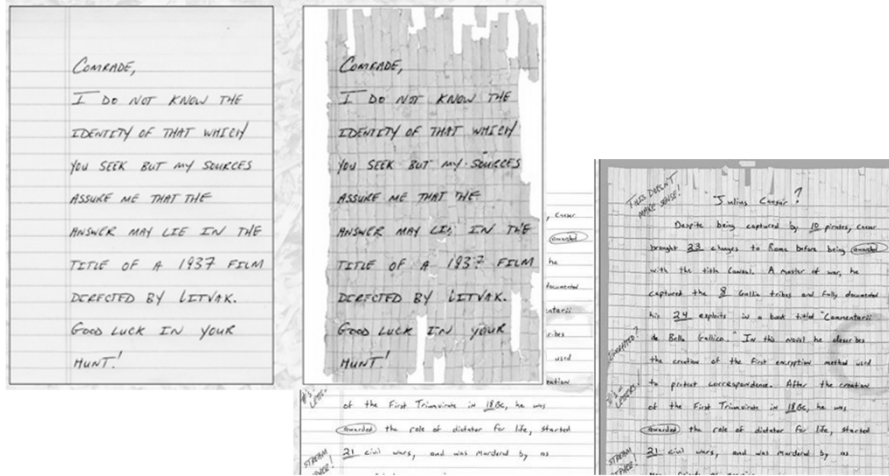 COMRADE,
I DO NOT KNOW THE
IDENTITY OF THAT WHICH
YOU SEEK BUT MY SOURCES
ASSURE ME THAT THE
ANSWER MAY LIE IN THE
TITLE OF A 1937 FILM
DIRECTED BY LITVAK.
GOOD LUCK IN YOUR
HUNT!
COMRADE,
I DO NOT KNOW THE
IDENTITY OF THAT WHICH
YOU SEEK BUT MY SOURCES
ASSURE ME THAT THE
ANSWER MAY LIE IN THE
TITLE OF A 1937 FILM
DIRECTED BY LITVAK.
GOOD LUCK IN YOUR
HUNT!
, Caesar
awarded
he
used
#'s=
LETTERS!
of the First Triumvirate in 18BC, he was
awarded the role of dictator for life, started
21 civil wars, and was murdered by as
STREAM
THIS DOESN'T
MAKE SENSE!
Julius Caesar?
Despite being captured by 10 pirates, Caesar
brought 23 changes to Rome before being awarded
with the title Consul. A master of war, he
captured the 8 Gallic tribes and fully documented
his 24 exploits in a book titled "Commentarii
de Bello Gallico." In this novel he describes
the creation of the first encryption method used
to protect correspondence. After the creation
of the First Triumvirate in 18BC, he was
awarded the role of dictator for life, started
21 civil wars, and was murdered by as
#'s=
LETTERS!
STREAM